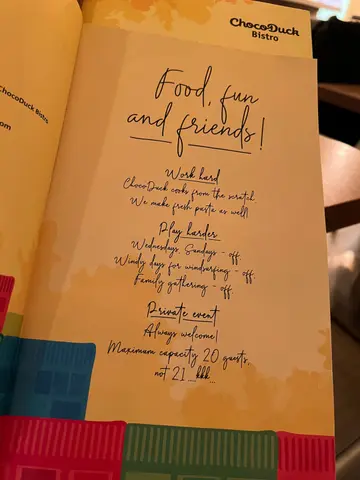 ChocoDuck
Bistro
ChocoDuck Bistro
om
Food, fun
and friends!
Work hard
ChocoDuck cooks from the scratch.
We make fresh pasta as well!
Play harder
Wednesdays, Sundays - off.
Windy days for windsurfing - off.
Family gathering - off.
Private event
Always welcome!
Maximum capacity 20 guests,
not 21 ...kkk...